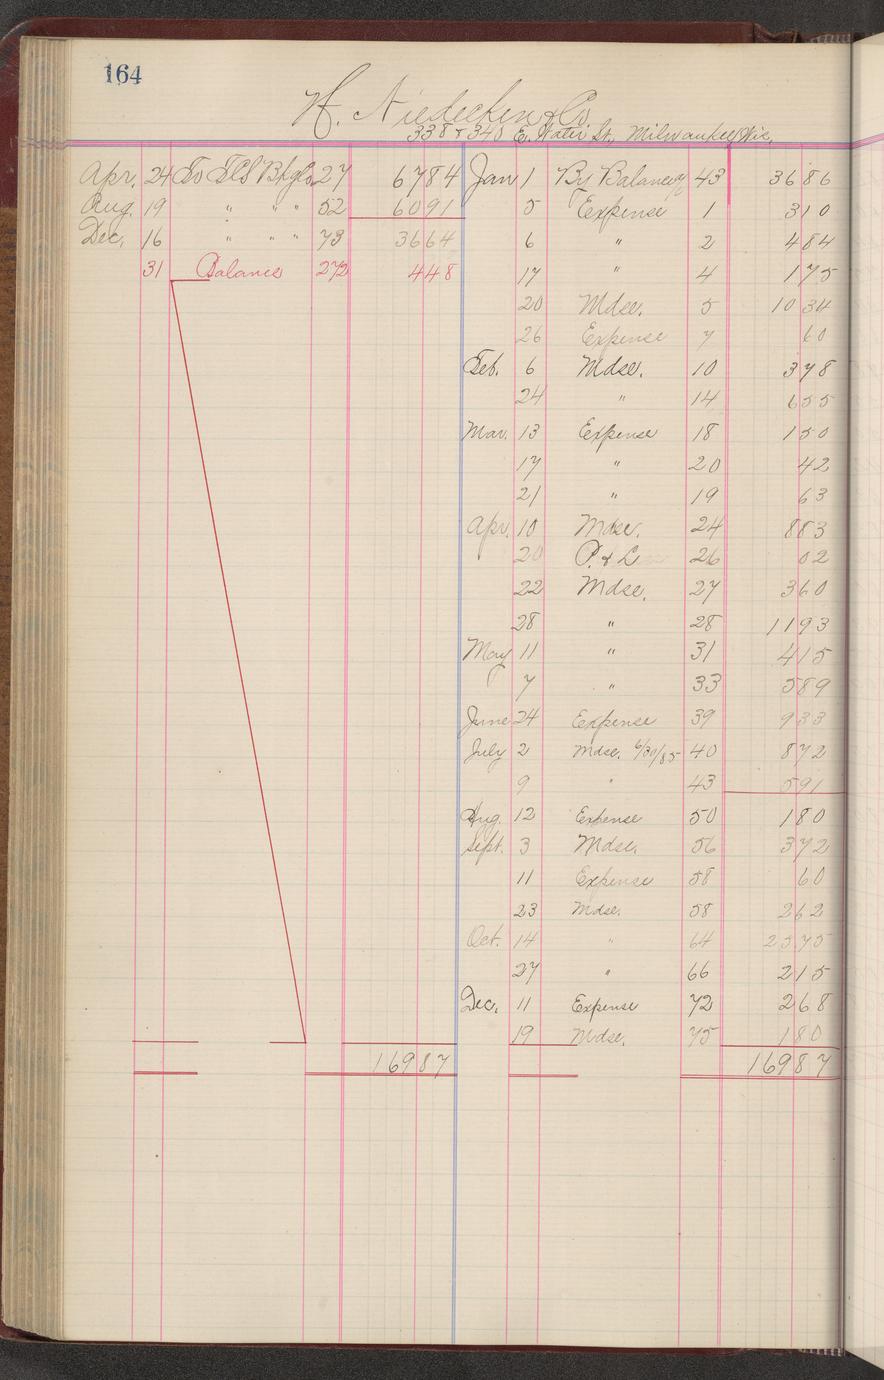 164
H. Niedecken & Co.
338 & 340 E. Water St., Milwaukee, Wis,
Apr. 24 To 27 6784 Jan 1 By Balance 43 3686
Aug. 19 " " " 52 6091 5 Expense 1 310
Dec. 16 " " " 73 3664 6 " 2 484
31 Balance 272 448 17 " 4 175
20 Mdse. 5 1034
26 Expense 7 60
Feb. 6 Mdse. 10 378
24 " 14 655
Mar. 13 Expense 18 150
17 " 20 42
21 " 19 63
Apr. 10 Mdse. 24 883
20 P. & L 26 02
22 Mdse. 27 360
28 " 28 1193
May 11 " 31 415
7 " 33 589
June 24 Expense 39 933
July 2 Mdse. 6/30/85 40 872
9 " 43 591
Aug. 12 Expense 50 180
Sept. 3 Mdse. 56 372
11 Expense 58 60
23 Mdse. 58 262
Oct. 14 " 64 2575
27 " 66 215
Dec. 11 Expense 72 268
19 Mdse. 75 180
16987 16987